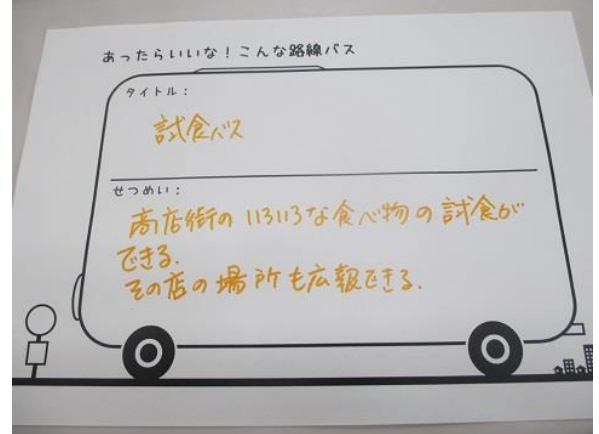 あったらいいな！こんな路線バス
タイトル：
試食バス
せつめい：
商店街のいろいろな食べ物の試食が
できる.
その店の場所も広報できる.